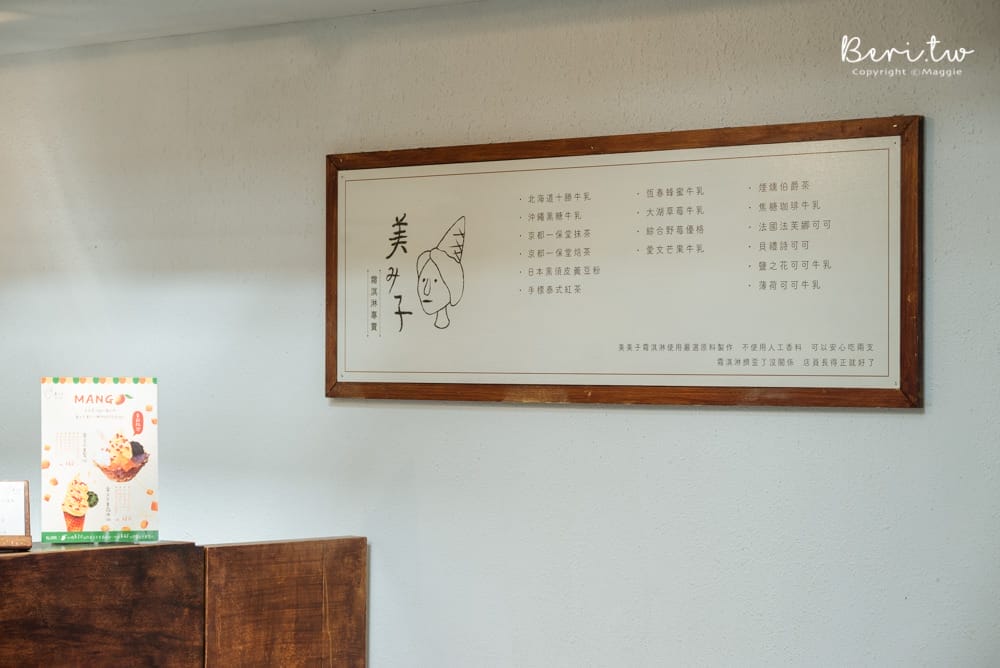 Beri.tw
Copyright ©Maggie
美み子
霜淇淋專賣
・北海道十勝牛乳
・沖繩黑糖牛乳
・京都一保堂抹茶
・京都一保堂焙茶
・日本黑須皮黃豆粉
・手標泰式紅茶
・恆春蜂蜜牛乳
・大湖草莓牛乳
・綜合野莓優格
・愛文芒果牛乳
・煙燻伯爵茶
・焦糖珈琲牛乳
・法國法芙娜可可
・貝禮詩可可
・鹽之花可可牛乳
・薄荷可可牛乳
美美子霜淇淋使用嚴選原料製作 不使用人工香料 可以安心吃兩支
霜淇淋擠歪了沒關係 店員長得正就好了
MANGO